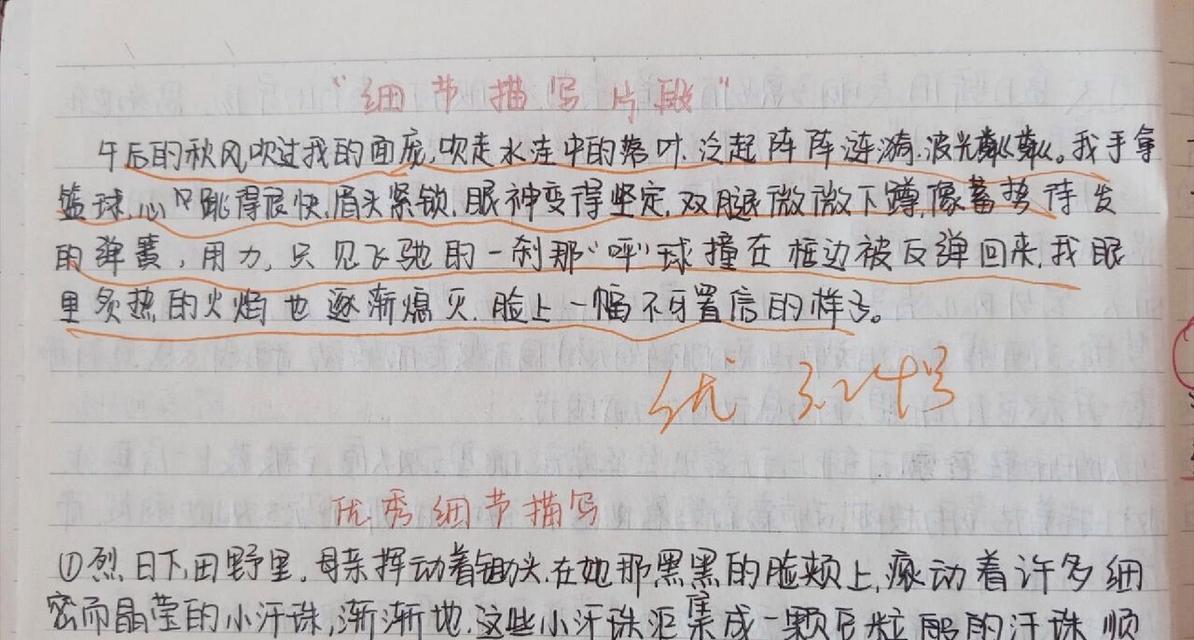 “细节描写片段”
午后的秋风吹过我的面庞,吹走水洼中的落叶.泛起阵阵涟漪.波光粼粼。我手拿
篮球,心口跳得很快,眉头紧锁.眼神变得坚定.双腿微微下蹲,像蓄势待发
的弹簧,用力,只见飞驰的一刹那“呼”球撞在框边被反弹回来,我眼
里炙热的火焰也逐渐熄灭.脸上一幅不可置信的样子。
优
优秀细节描写
①烈日下,田野里,母亲挥动着锄头.在她那黑黑的脸颊上,滚动着许多细
密而晶莹的小汗珠,渐渐地.这些小汗珠汇集成一颗豆粒般的汗珠 顺